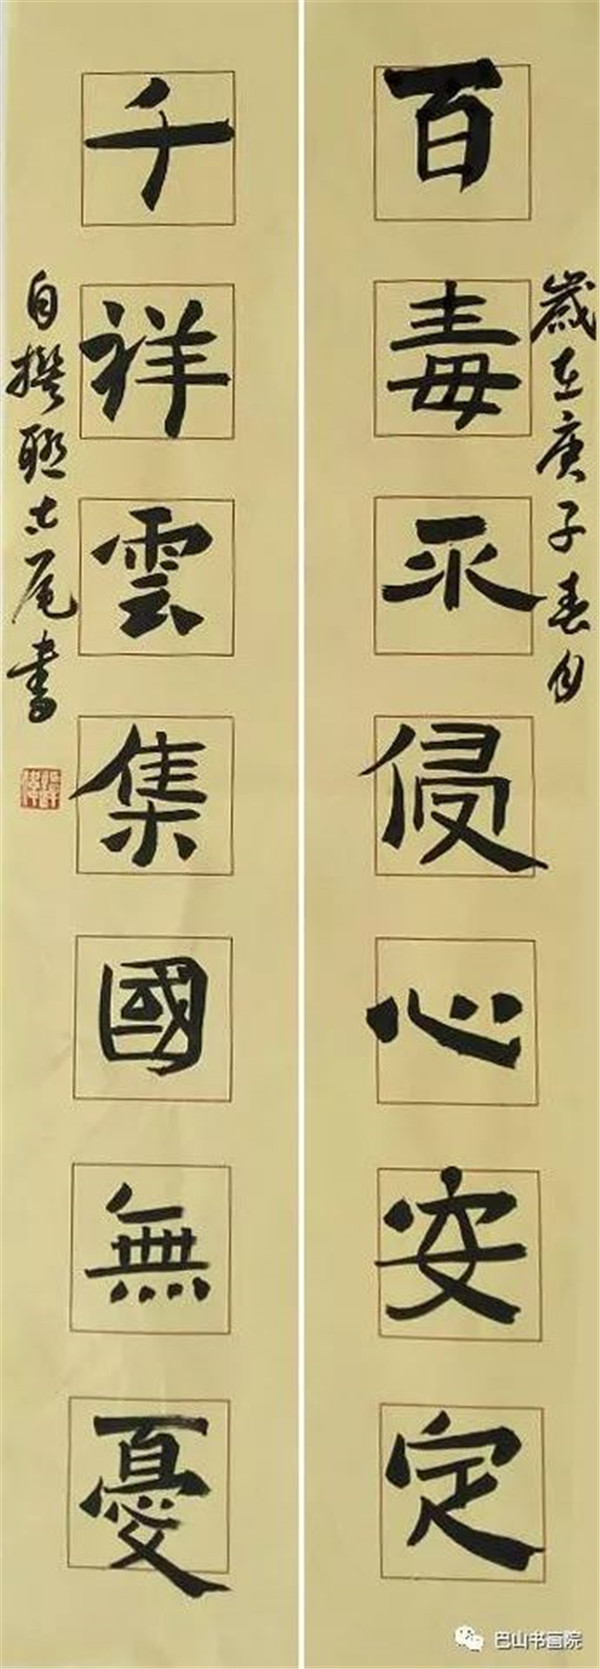 歲在庚子春月
百毒不侵心安定
千祥雲集國無憂
自撰聯尾書
巴山书画院